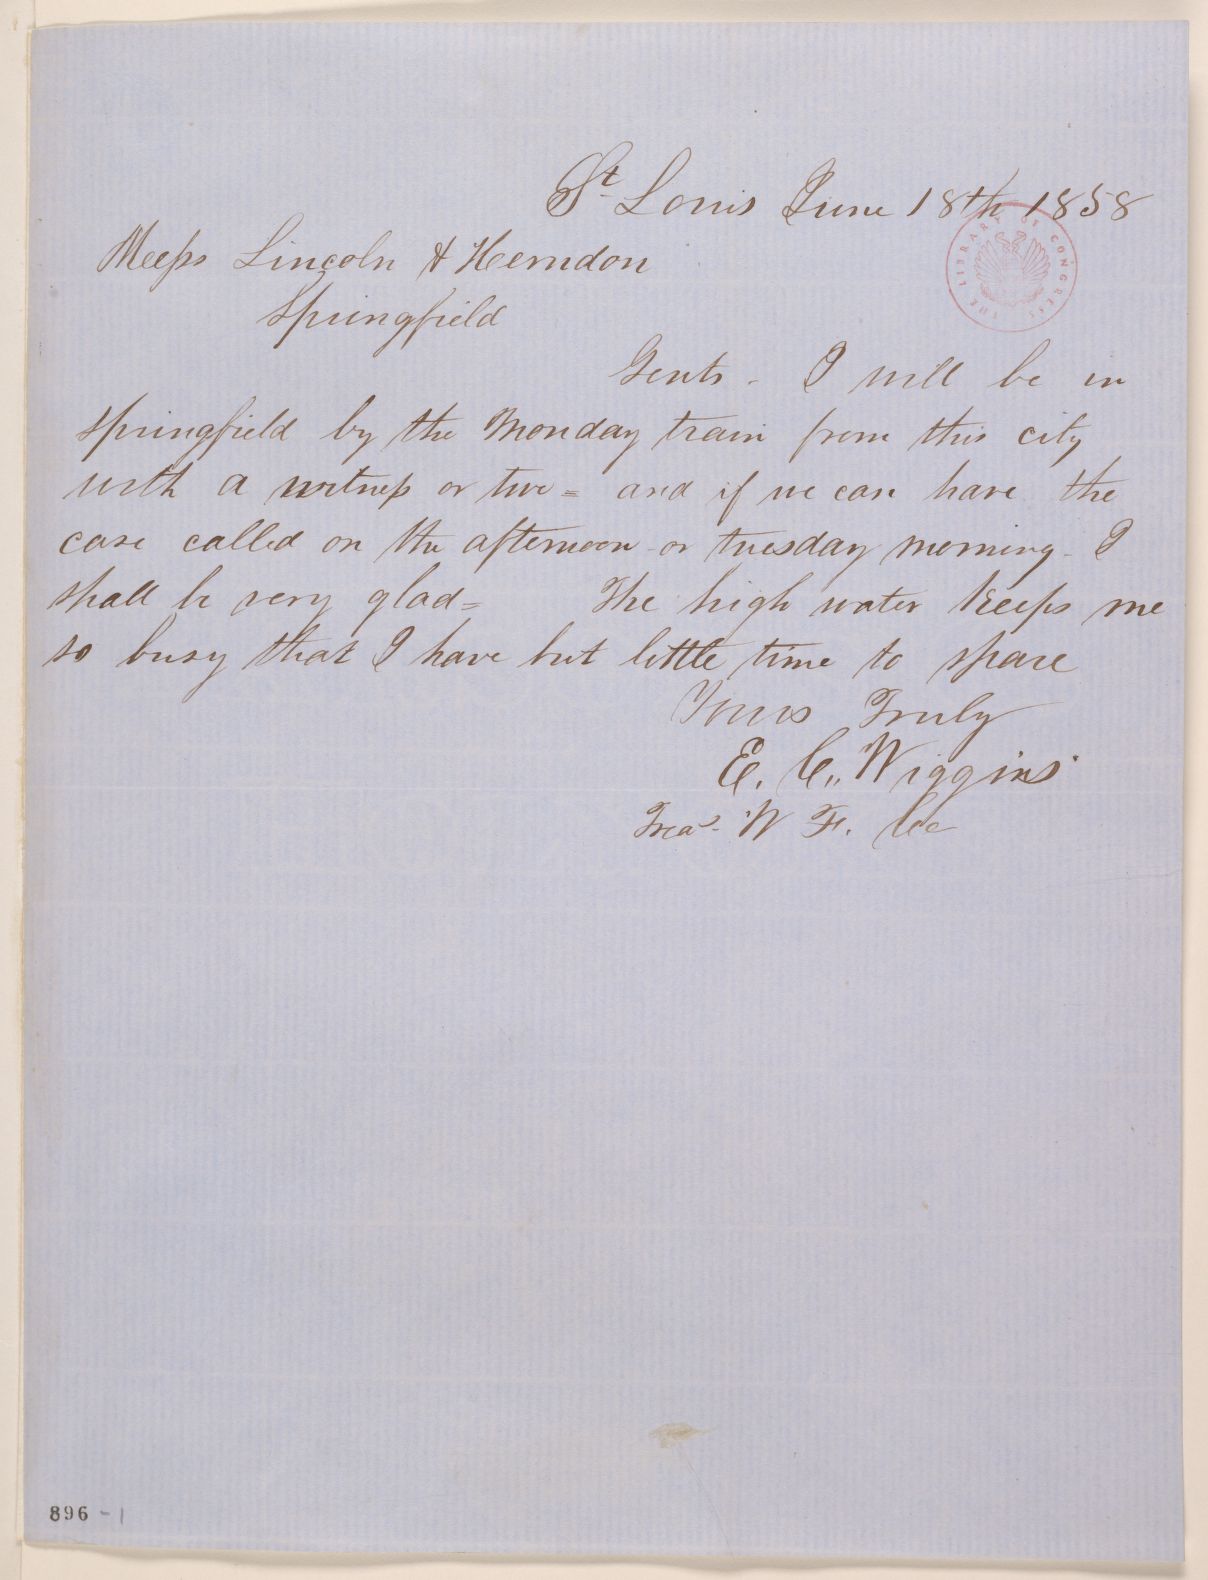 St. Louis June 18th 1858
THE LIBRARY OF CONGRESS
Messs Lincoln & Herndon
Springfield
Gents - I will be in
Springfield by the Monday train from this city
with a witness or two = and if we can have the
case called on the afternoon or tuesday morning - I
shall be very glad = The high water keeps me
so busy that I have but little time to spare
Yours Truly
E. C. Wiggins
Trea. W F. Co
896 - 1